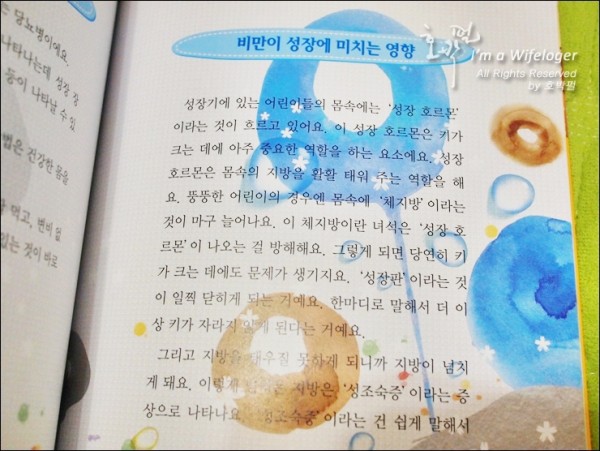 는 당뇨병이에요.
나타나는데 성장 장
등이 나타날 수 있
법은 건강한 몸을
먹고, 변비 없
있는 것이 바로
비만이 성장에 미치는 영향
호박필
I'm a Wifeloger
All Rights Reserved
by 호박필
성장기에 있는 어린이들의 몸속에는 '성장 호르몬'
이라는 것이 흐르고 있어요. 이 성장 호르몬은 키가
크는 데에 아주 중요한 역할을 하는 요소에요. 성장
호르몬은 몸속의 지방을 활활 태워 주는 역할을 해
요. 뚱뚱한 어린이의 경우엔 몸속에 '체지방'이라는
것이 마구 늘어나요. 이 체지방이란 녀석은 '성장 호
르몬'이 나오는 걸 방해해요. 그렇게 되면 당연히 키
가 크는 데에도 문제가 생기지요. '성장판'이라는 것
이 일찍 닫히게 되는 거예요. 한마디로 말해서 더 이
상 키가 자라지 않게 된다는 거예요.
그리고 지방을 태우질 못하게 되니까 지방이 넘치
게 돼요. 이렇게 지방은 '성조숙증'이라는 증
상으로 나타나요. '성조숙증'이라는 건 쉽게 말해서